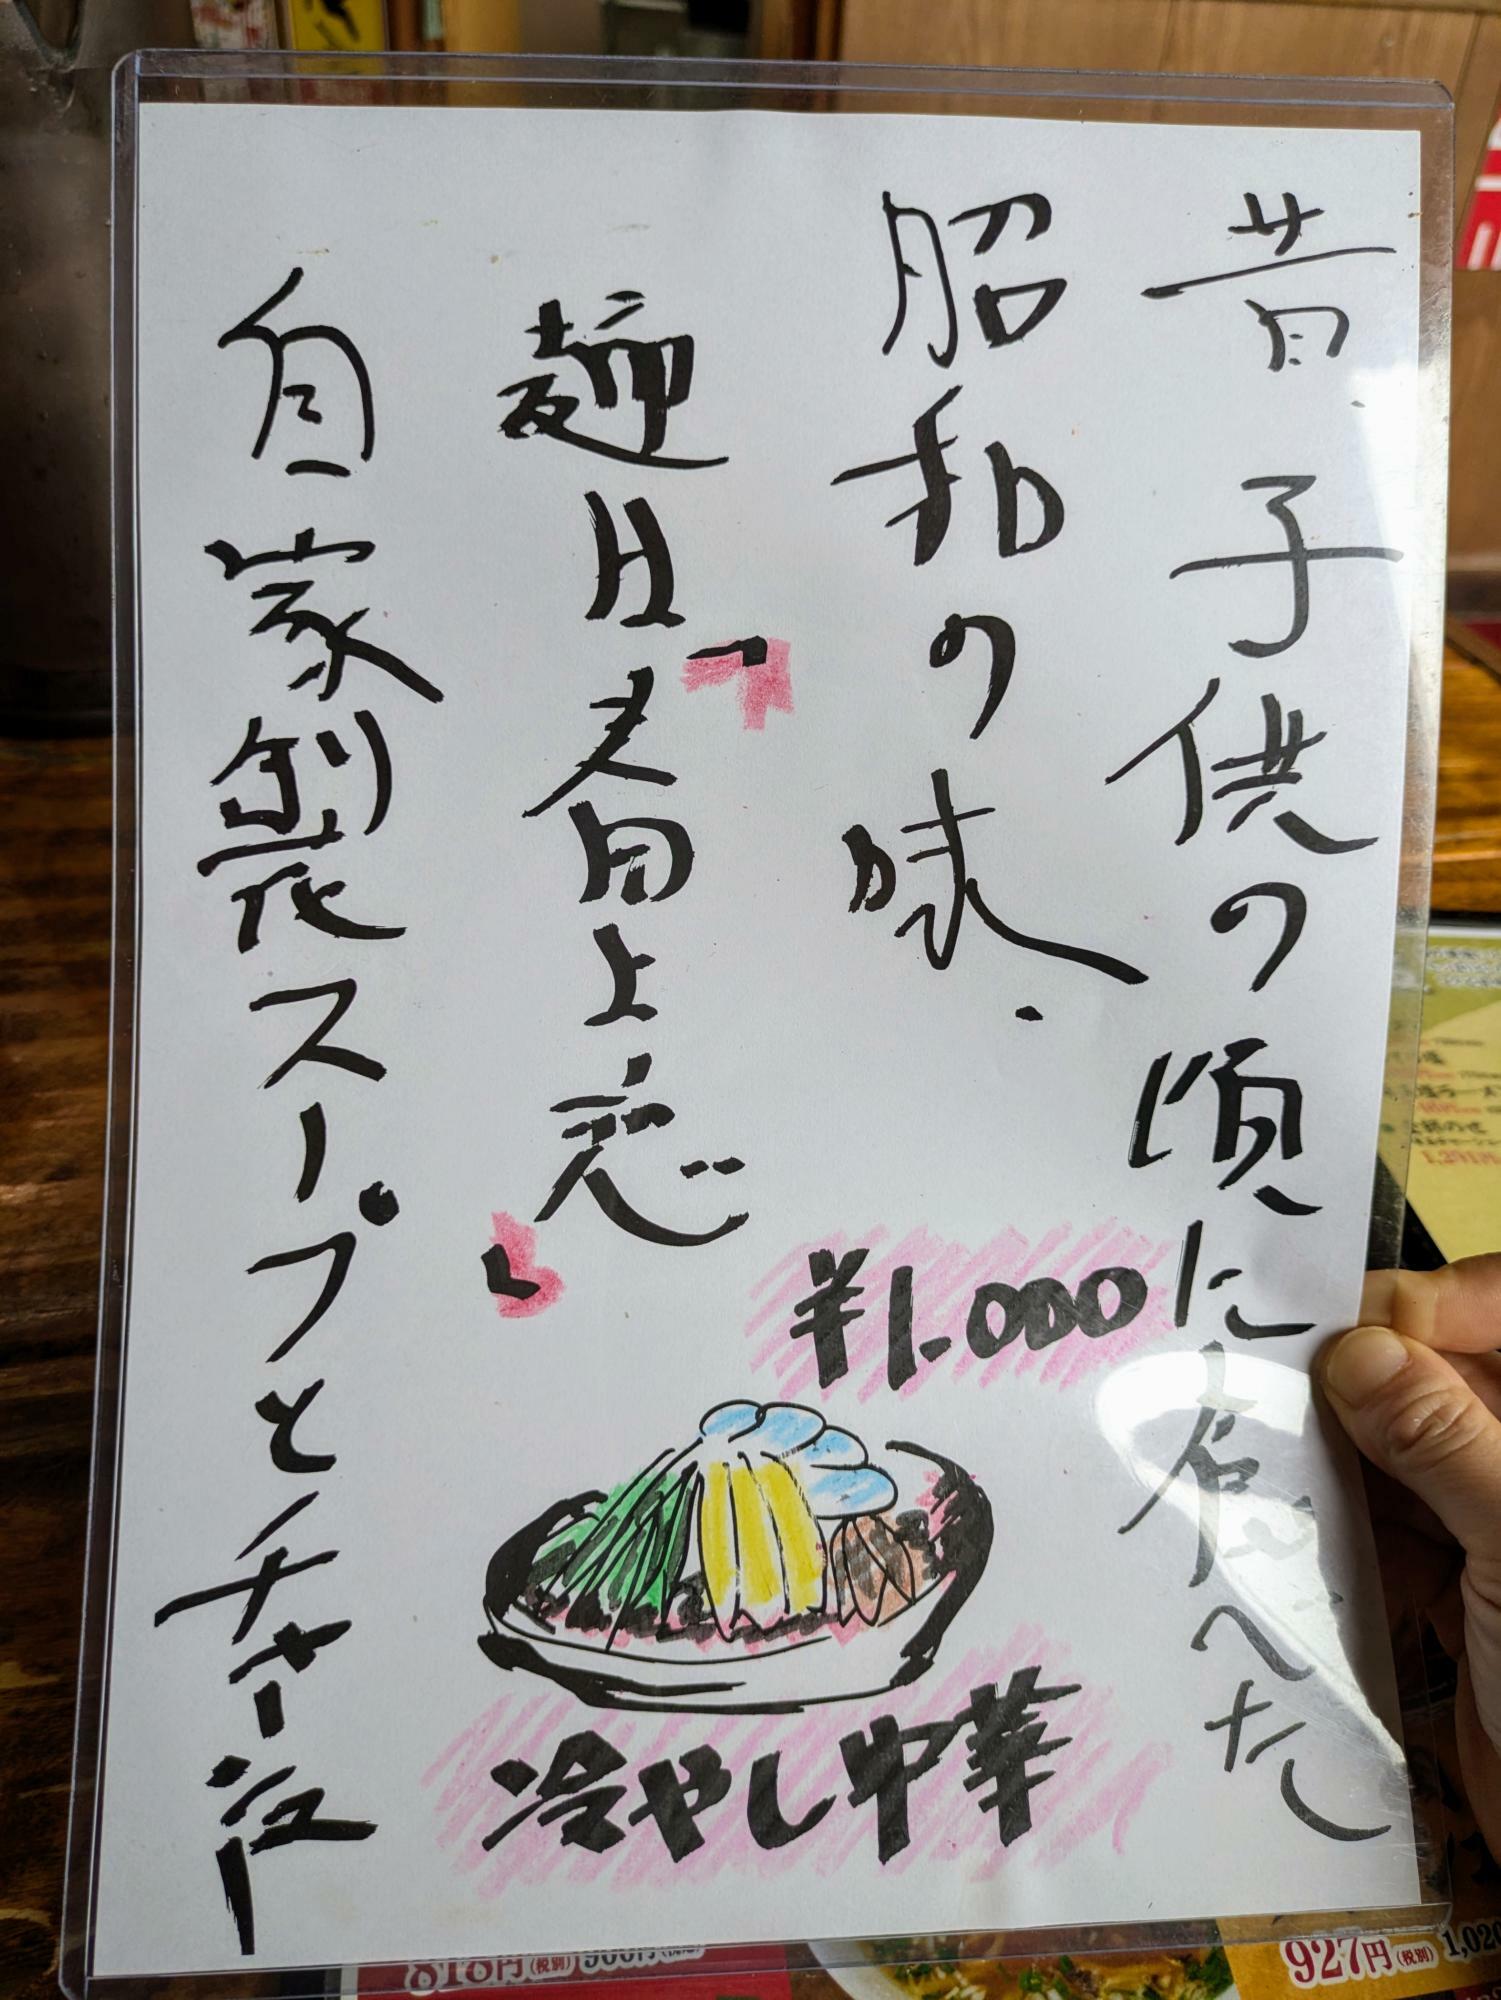 昔、子供の頃に食べた
昭和の味、
麺は「
」
自家製スープとチャーシュー
¥1.000
冷やし中華
818円(税別) 900円(税込)
927円(税別)